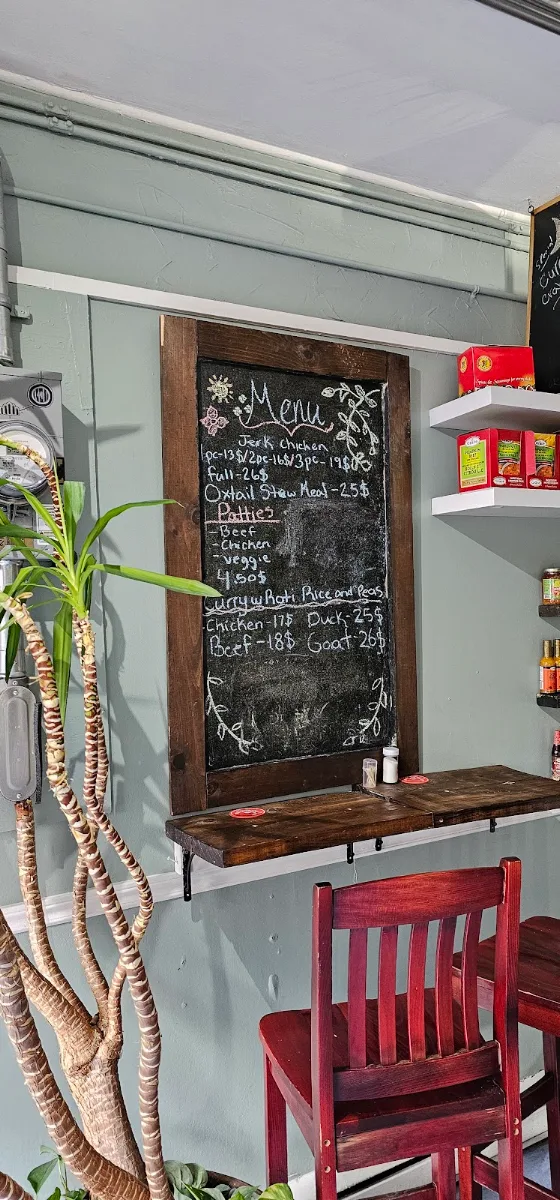 Menu
Jerk Chicken
pc-13$/2pc-16$/3pc-19$
full-26$
Oxtail Stew Meal-25$
Patties
-Beef
-Chicken
-veggie
4.50$
Curry w Roti Rice and Peas
Chicken-17$ Duck-25$
Beef-18$ Goat-26$
Special